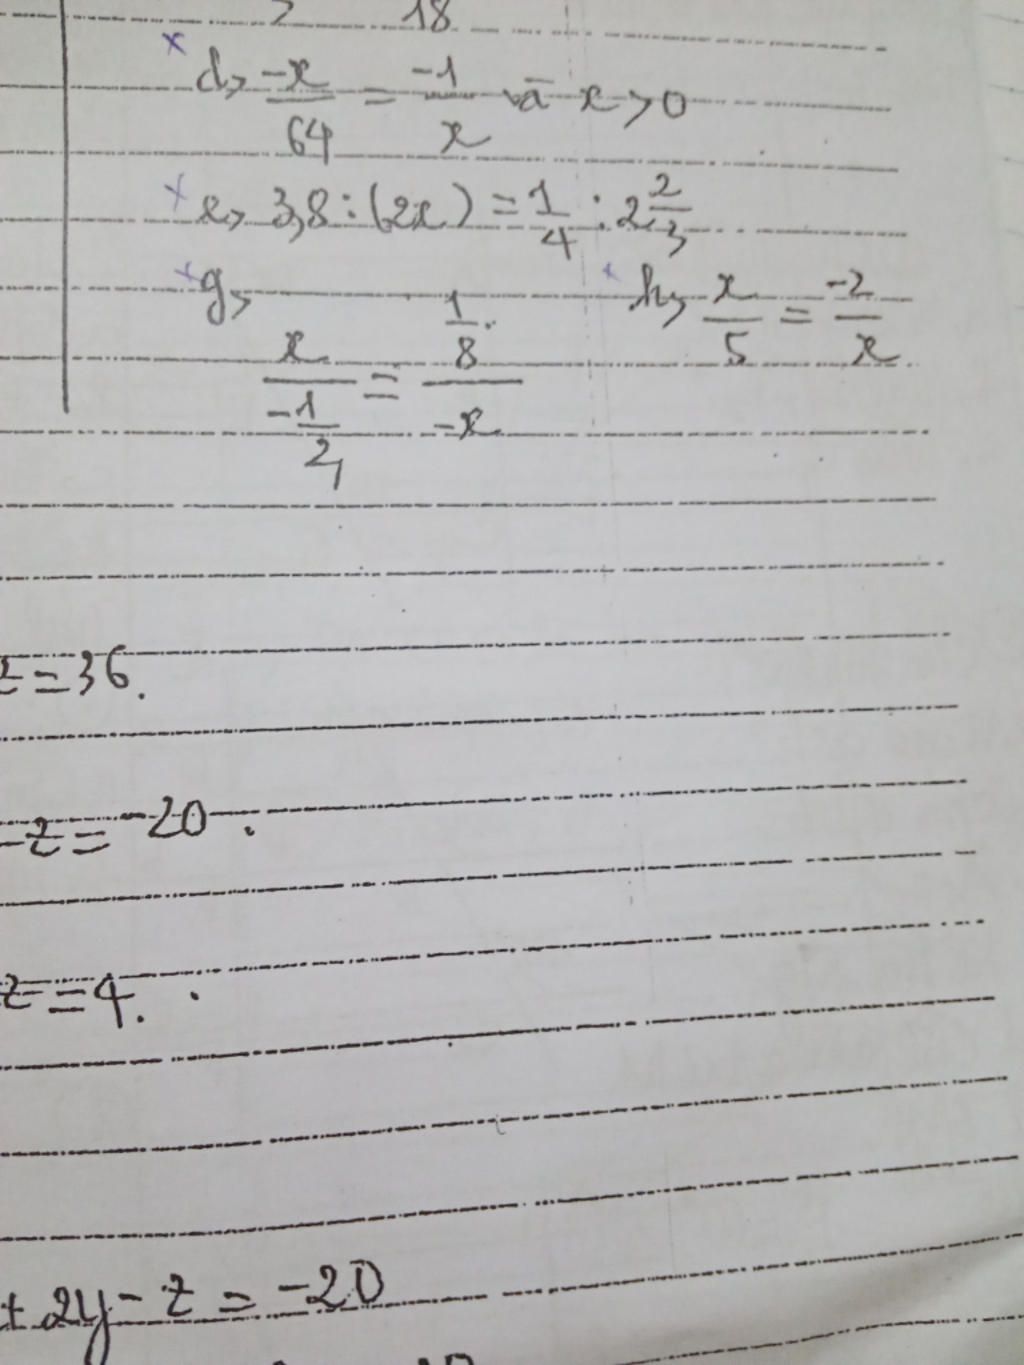 18
d, -x/64 = -1/x và x > 0
e, 3,8 : (2x) = 1/4 : 2 2/3
g, x/(-1/2) = (1/8)/(-x) h, x/5 = -2/x
z = 36.
- z = -20.
z = 4.
+ 2y - z = -20